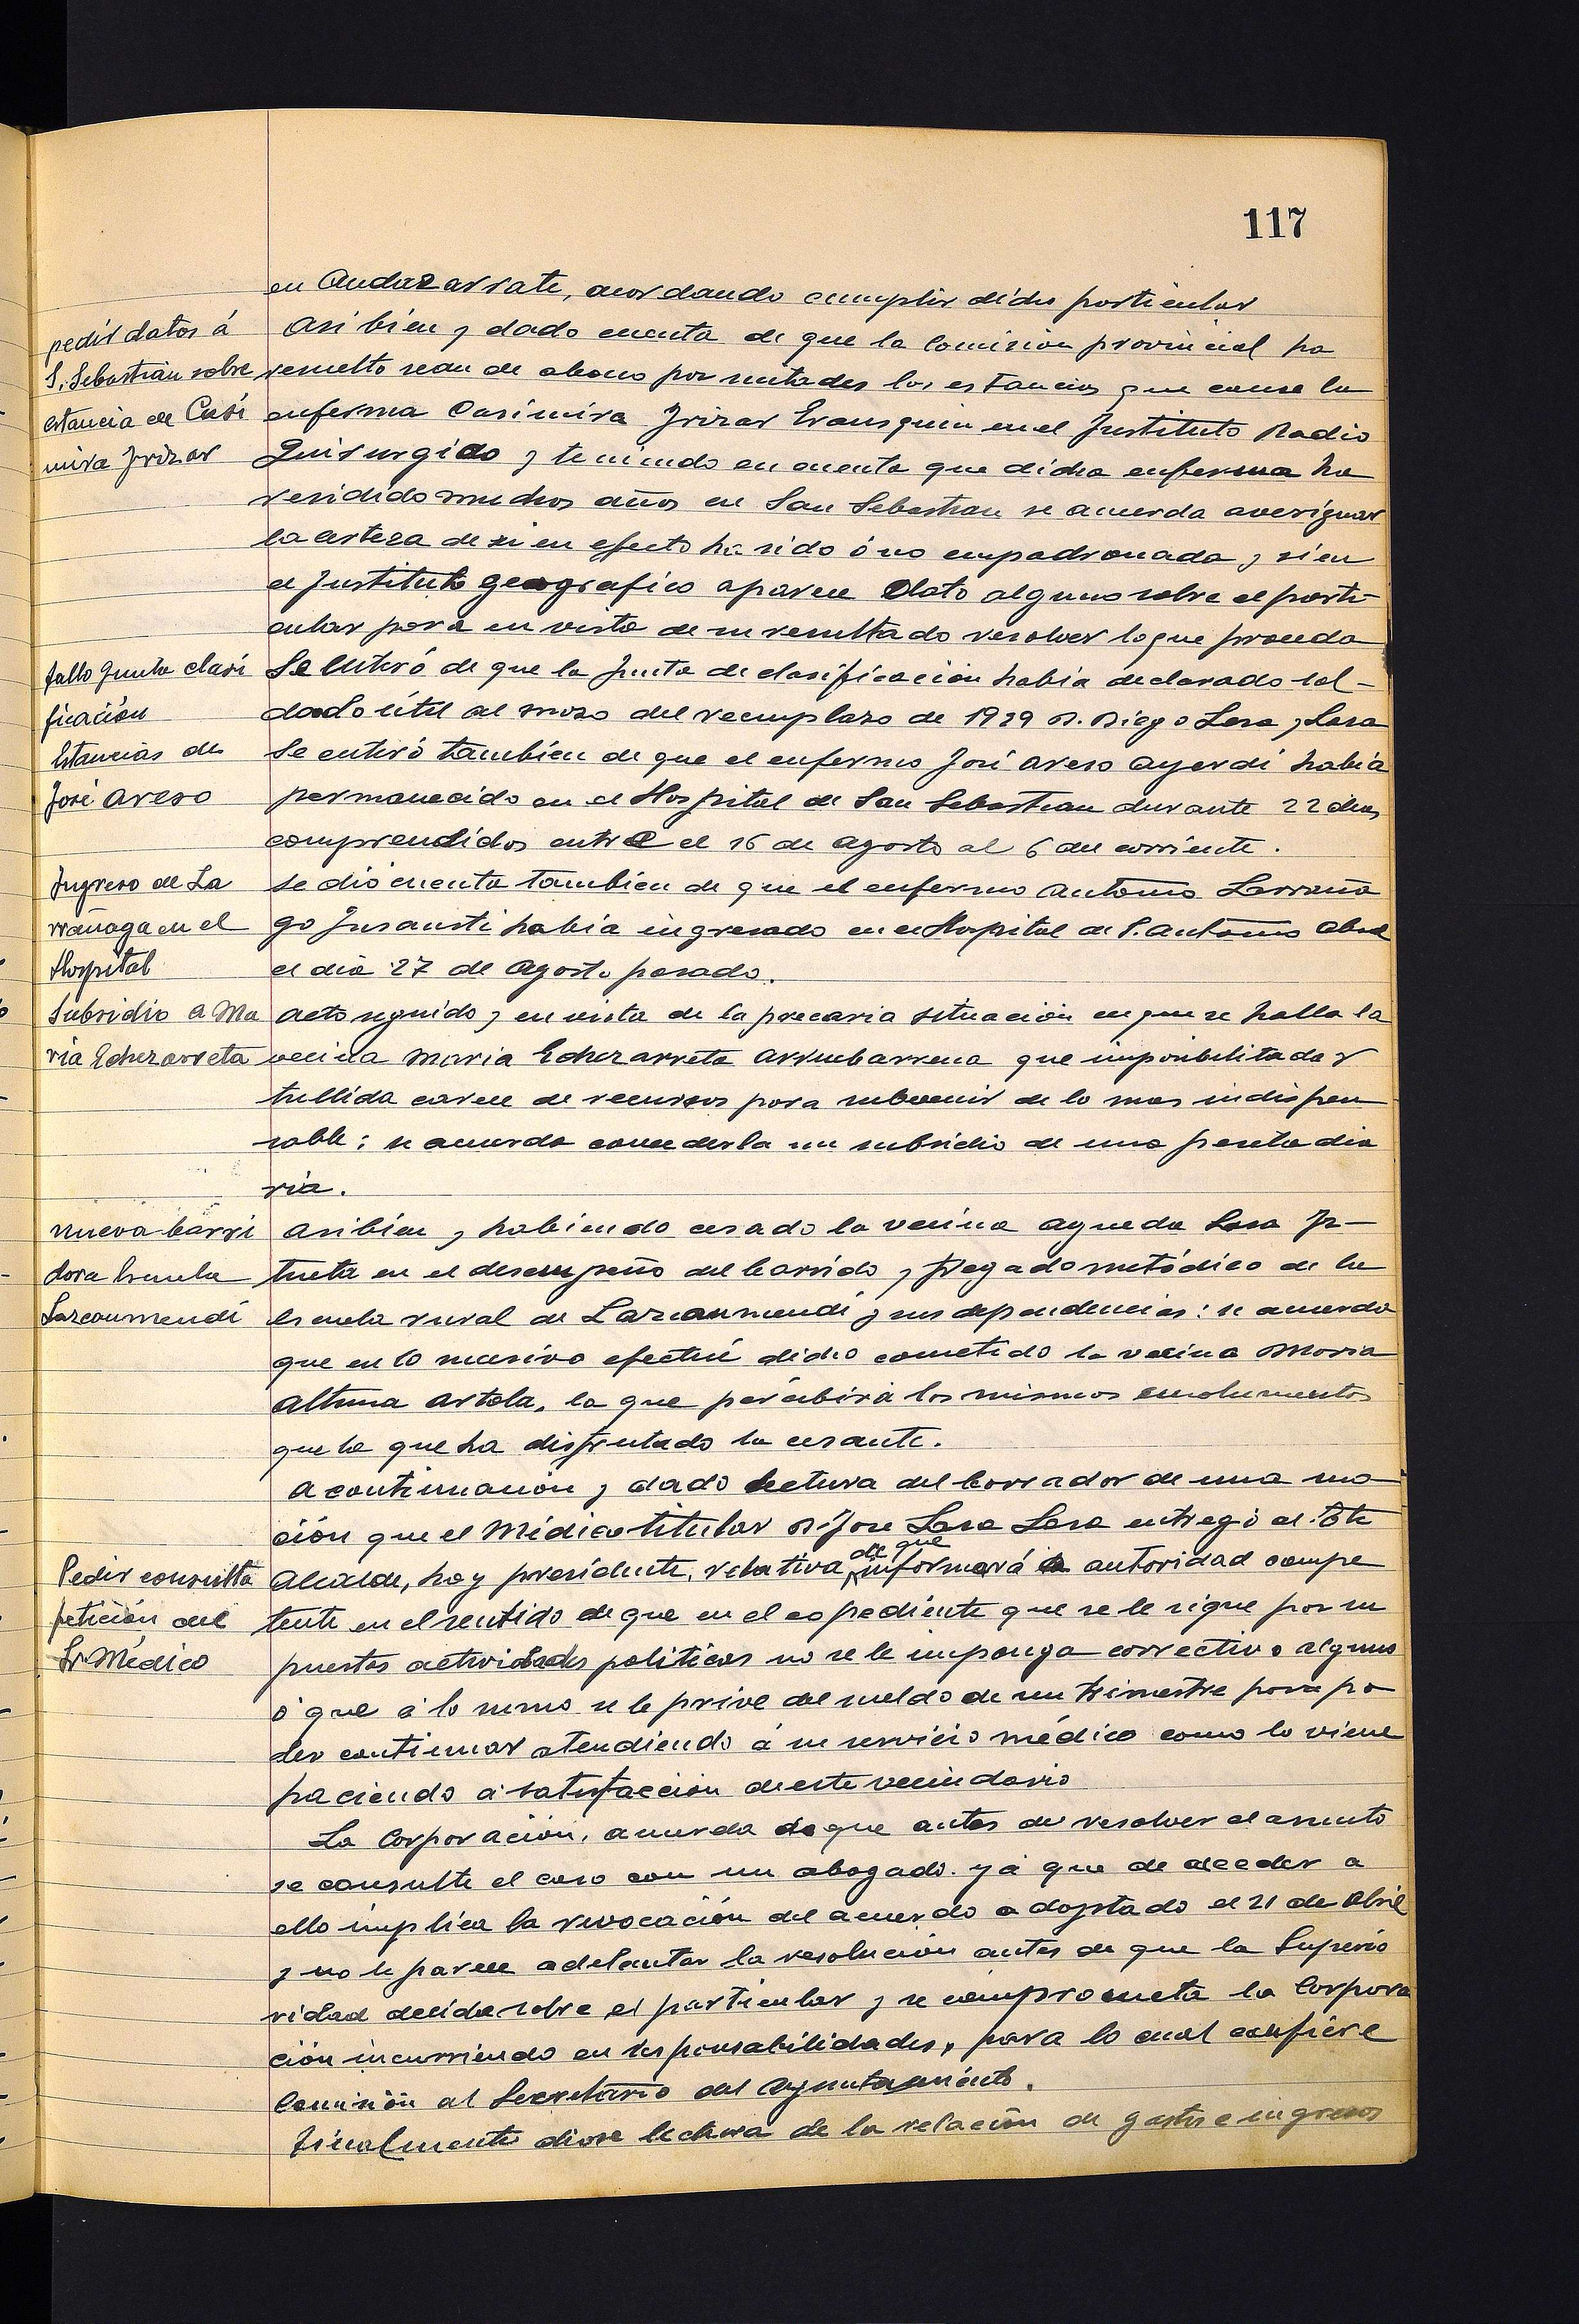 117
en Andazarrate, acordando cumplir dicho particular
pedir datos á
S. Sebastián sobre
estancia de Casi
mira Irizar
Asi bien y dado cuenta de que la Comisión provincial ha
resuelto sean de abono por mitades las estancias que cause la
enferma Casimira Irizar Eransquin en el Instituto Radio
Quirurgico y teniendo en cuenta que dicha enferma ha
residido muchos años en San Sebastian se acuerda averiguar
la certeza de si en efecto ha sido ó no empadronada y si en
el Instituto geografico aparece dato alguno sobre el parti-
cular para en vista de su resultado resolver lo que proceda
fallo Junta clasi
ficación
Se enteró de que la Junta de clasificación habia declarado sol-
dado útil al mozo del reemplazo de 1929 D. Diego Lasa y Lasa
Estancias de
José Areso
Se enteró tambien de que el enfermo José Areso Ayerdi había
permanecido en el Hospital de San Sebastian durante 22 dias
comprendidos entre el 16 de Agosto al 6 del corriente.
Ingreso de La
rrañaga en el
Hospital
Se dio cuenta tambien de que el enfermo Antonio Larraña
ga Insausti habia ingresado en el Hospital de S. Antonio Abad
el dia 27 de Agosto pasado.
Subsidio a Ma
ria Echezarreta
Acto seguido y en vista de la precaria situación en que se halla la
vecina Maria Echezarreta Arruebarrena que imposibilitada y
tullida carece de recursos para subvenir de lo mas indispen
sable; se acuerda concederla un subsidio de una peseta dia
ria.
nueva barri
dora Escuela
Lazcanmendi
Asibien y habiendo cesado la vecina Agueda Lasa Iz-
tueta en el desempeño del barrido y fregado metódico de la
Escuela rural de Lazcanmendi y sus dependencias: se acuerda
que en lo sucesivo efectué dicho cometido la vecina Maria
Altuna Artola, la que percibirá los mismos emolumentos
que la que ha disfrutado la cesante.
A continuación y dado lectura del borrador de una mo
ción que el Médico titular D. Jose Lasa Lasa entregó al Tte
Pedir consulta
petición del
Sr Médico
de que
Alcalde, hoy presidente, relativa informará la autoridad compe
tente en el sentido de que en el expediente que se le sigue por su
puestas actividades politicas no se le imponga correctivo alguno
ó que á lo sumo se le prive del sueldo de un trimestre para po
der continuar atendiendo á su servicio médico como lo viene
haciendo á satisfaccion de este vecindario
La Corporación, acuerda de que antes de resolver el asunto
se consulte el caso con un abogado. ya que de acceder a
ello implica la revocación del acuerdo adoptado el 21 de Abril
y no le parece adelantar la resolución antes de que la Superio
ridad decida sobre el particular y se comprometa la Corpora
ción incurriendo en responsabilidades, para lo cual confiere
Comisión al Secretario del Ayuntamiento.
Finalmente diose lectura de la relación de gastos e ingresos